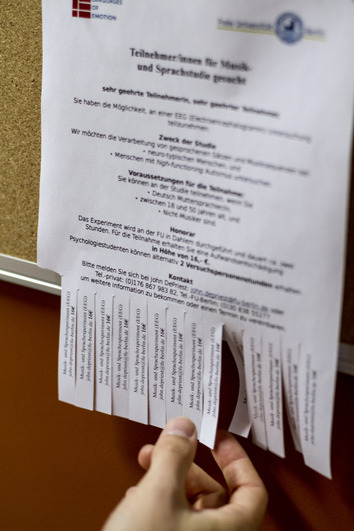 LANGUAGES
OF
EMOTION
Freie Universität Berlin
Teilnehmer/innen für Musik-
und Sprachstudie gesucht
sehr geehrte Teilnehmerin, sehr geehrter Teilnehmer,
Sie haben die Möglichkeit, an einer EEG (Electroencephalogramm) Untersuchung
teilzunehmen.
Zweck der Studie
Wir möchten die Verarbeitung von gesprochenen Sätzen und
• neuro-typischen Menschen, und
• Menschen mit high-functioning Autismus untersuchen.
Voraussetzungen für die Teilnahme:
Sie können an der Studie teilnehmen, wenn Sie
• Deutsch Muttersprachler,
• zwischen 18 und 50 Jahren alt, und
• Nicht Musiker sind.
Honorar
Das Experiment wird an der FU in Dahlem durchgeführt und dauert ca.
Stunden. Für die Teilnahme erhalten Sie eine Aufwandsentschädigung
in Höhe von 16,- €.
Psychologiestudenten können alternativ 2 Versuchspersonenstunden erhalten.
Kontakt
Bitte melden Sie sich bei John DePriest: john.depriest@fu-berlin.de oder
Tel.-privat: (0)176 867 983 82, Tel.-FU-Berlin: (0)30 838 55277
um weitere Information zu bekommen oder einen Termin zu vereinbaren.
Musik- und Sprachexperiment (EEG)
john.depriest@fu-berlin.de 16€
Musik- und Sprachexperiment (EEG)
john.depriest@fu-berlin.de 16€
Musik- und Sprachexperiment (EEG)
john.depriest@fu-berlin.de 16€
Musik- und Sprachexperiment (EEG)
john.depriest@fu-berlin.de 16€
Musik- und Sprachexperiment (EEG)
john.depriest@fu-berlin.de 16€
Musik- und Sprachexperiment (EEG)
john.depriest@fu-berlin.de 16€
Musik- und Sprachexperiment (EEG)
john.depriest@fu-berlin.de 16€
Musik- und Sprachexperiment (EEG)
john.depriest@fu-berlin.de 16€